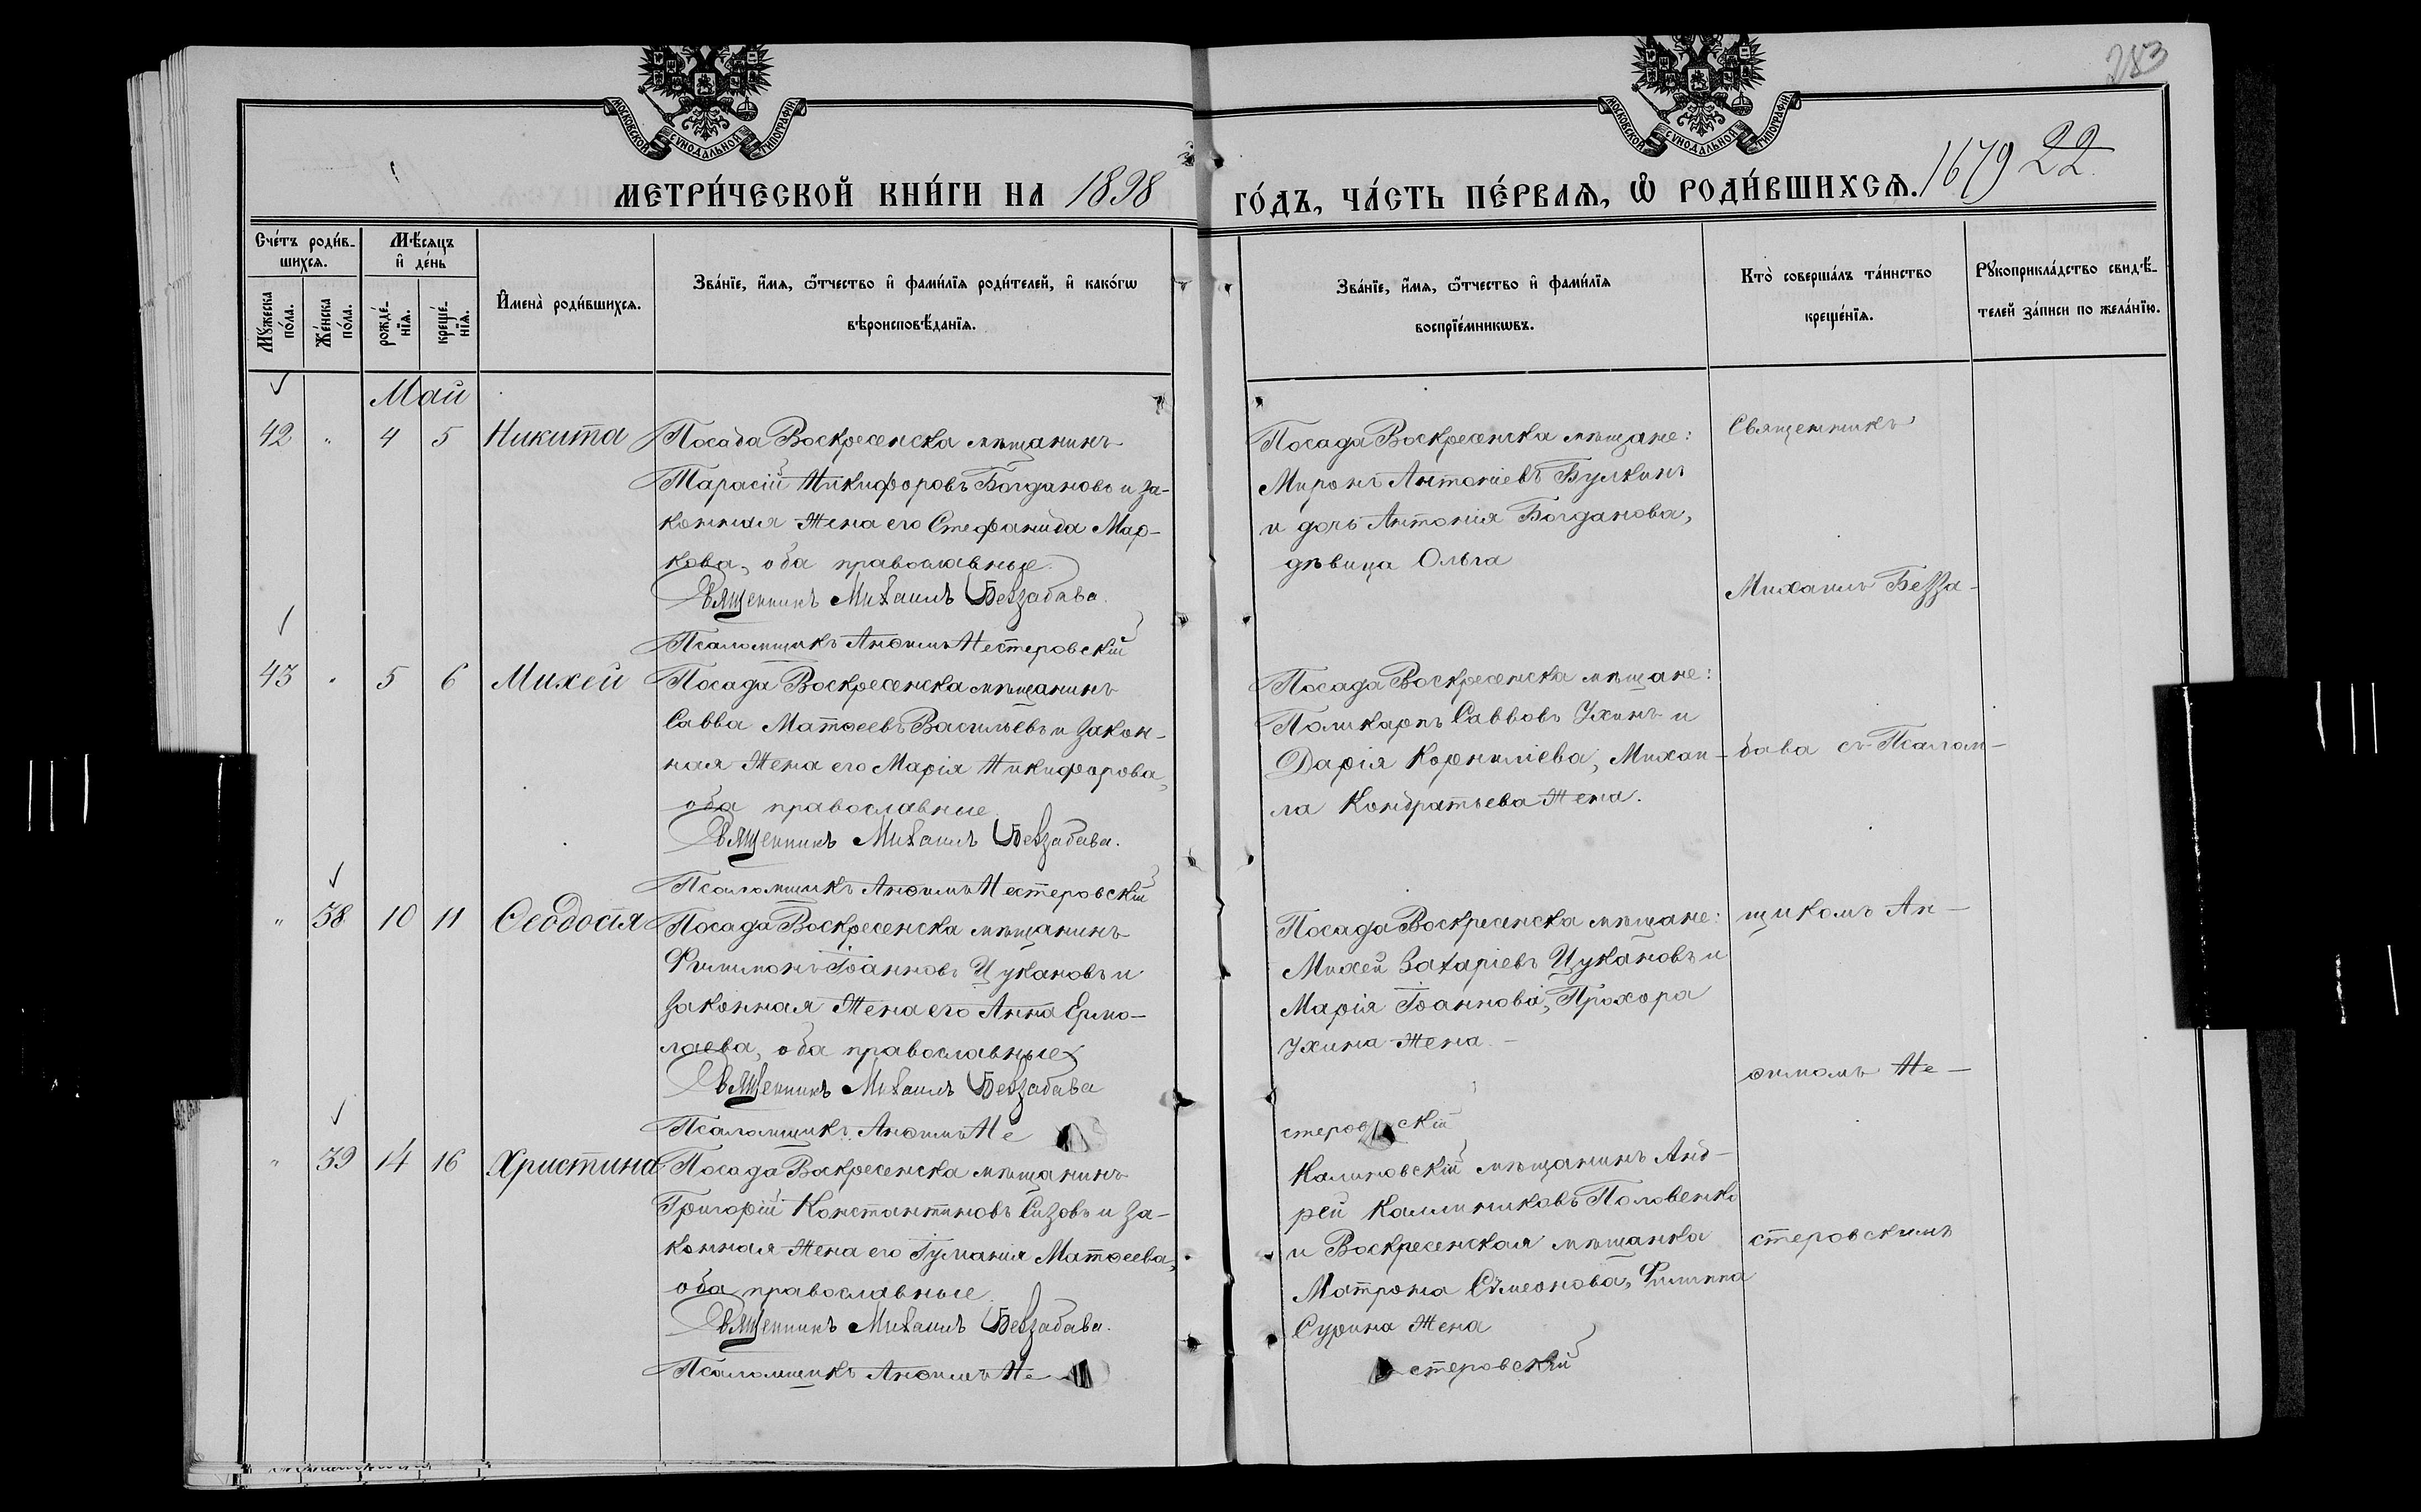 283
МОСКОВСКОЙ СѴНОДАЛЬНОЙ ТИПОГРАФІИ
МОСКОВСКОЙ СѴНОДАЛЬНОЙ ТИПОГРАФІИ
МЕТРИ́ЧЕСКОЙ КНИ́ГИ НА 1898
ГО́ДЪ, ЧА́СТЬ ПЕ́РВАѦ, Ѽ РОДИ́ВШИХСѦ. 1679 22
Сче́тъ роди́в-
шихсѧ.
Мѣ́сѧцъ
и҆ де́нь
Мꙋ́жеска
по́ла.
Же́нска
по́ла.
рожде́-
нїѧ.
креще́-
нїѧ.
И҆мена̀ роди́вшихсѧ.
Зва́нїе, и҆́мѧ, ѻ҆́тчество и҆ фами́лїѧ роди́телей, и҆ како́гѡ
вѣроисповѣ́данїѧ.
Зва́нїе, и҆́мѧ, ѻ҆́тчество и҆ фами́лїѧ
воспрїе́мникѡвъ.
Кто̀ соверша́лъ та́инство
креще́нїѧ.
Рꙋкоприкла́дство свидѣ́-
телей за́писи по жела́нїю.
Май
42 " 4 5 Никита
Посада Воскресенска мѣщанинъ
Тарасій Никифоровъ Богдановъ и за-
конная жена его Стефанида Мар-
кова, оба православные.
Священникъ Михаилъ Беззабава.
Псаломщикъ Анѳимъ Нестеровскій
Посада Воскресенска мѣщане:
Миронъ Антоніевъ Булкинъ
и дочь Антонія Богданова,
дѣвица Ольга
Священникъ
Михаилъ Безза-
43 " 5 6 Михей
Посада Воскресенска мѣщанинъ
Савва Матѳеевъ Васильевъ и закон-
ная жена его Марія Никифорова,
оба православные
Священникъ Михаилъ Беззабава.
Псаломщикъ Анѳимъ Нестеровскій
Посада Воскресенска мѣщане:
Поликарпъ Саввовъ Ухинъ и
Дарія Корниліева, Михаи-
ла Кондратьева жена.
бава съ Псалом-
" 38 10 11 Ѳеодосія
Посада Воскресенска мѣщанинъ
Филимонъ Іоанновъ Цукановъ и
законная жена его Анна Ермо-
лаева, оба православные
Священникъ Михаилъ Беззабава
Псаломщикъ Анѳимъ Не
Посада Воскресенска мѣщане:
Михей Захаріевъ Цукановъ и
Марія Іоаннова, Прохора
Ухина жена.
стеровскій
щикомъ Ан-
ѳимомъ Не-
" 39 14 16 Христина
Посада Воскресенска мѣщанинъ
Григорій Константиновъ Сизовъ и за-
конная жена его Іуліанія Матѳеева,
оба православные.
Священникъ Михаилъ Беззабава.
Псаломщикъ Анѳимъ Не
Калиновскій мѣщанинъ Анд-
рей Каллиниковъ Половенко
и Воскресенская мѣщанка
Матрона Сѵмеонова, Филиппа
Сурина жена
стеровскій
стеровскимъ